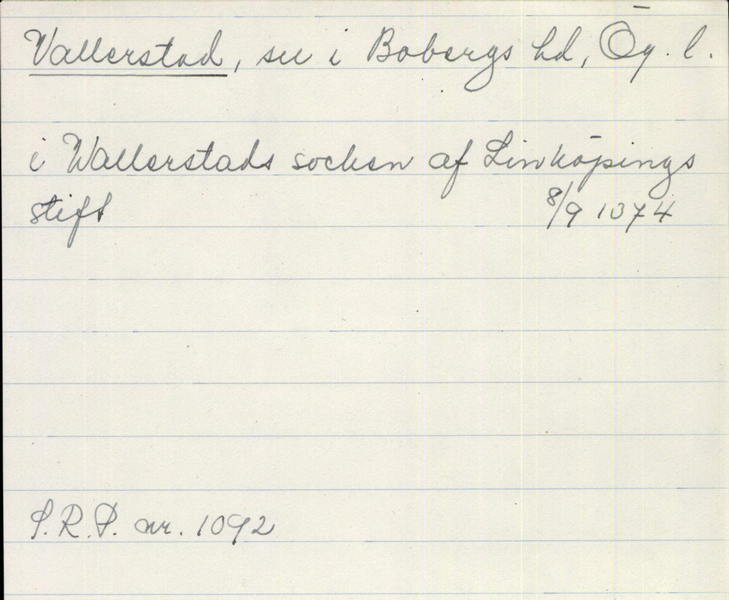 Vallerstad, sn i Bobergs hd, Ög. l.
i Wallerstads socken af Linköpings
stift 8/9 1374
S.R.P. nr. 1092